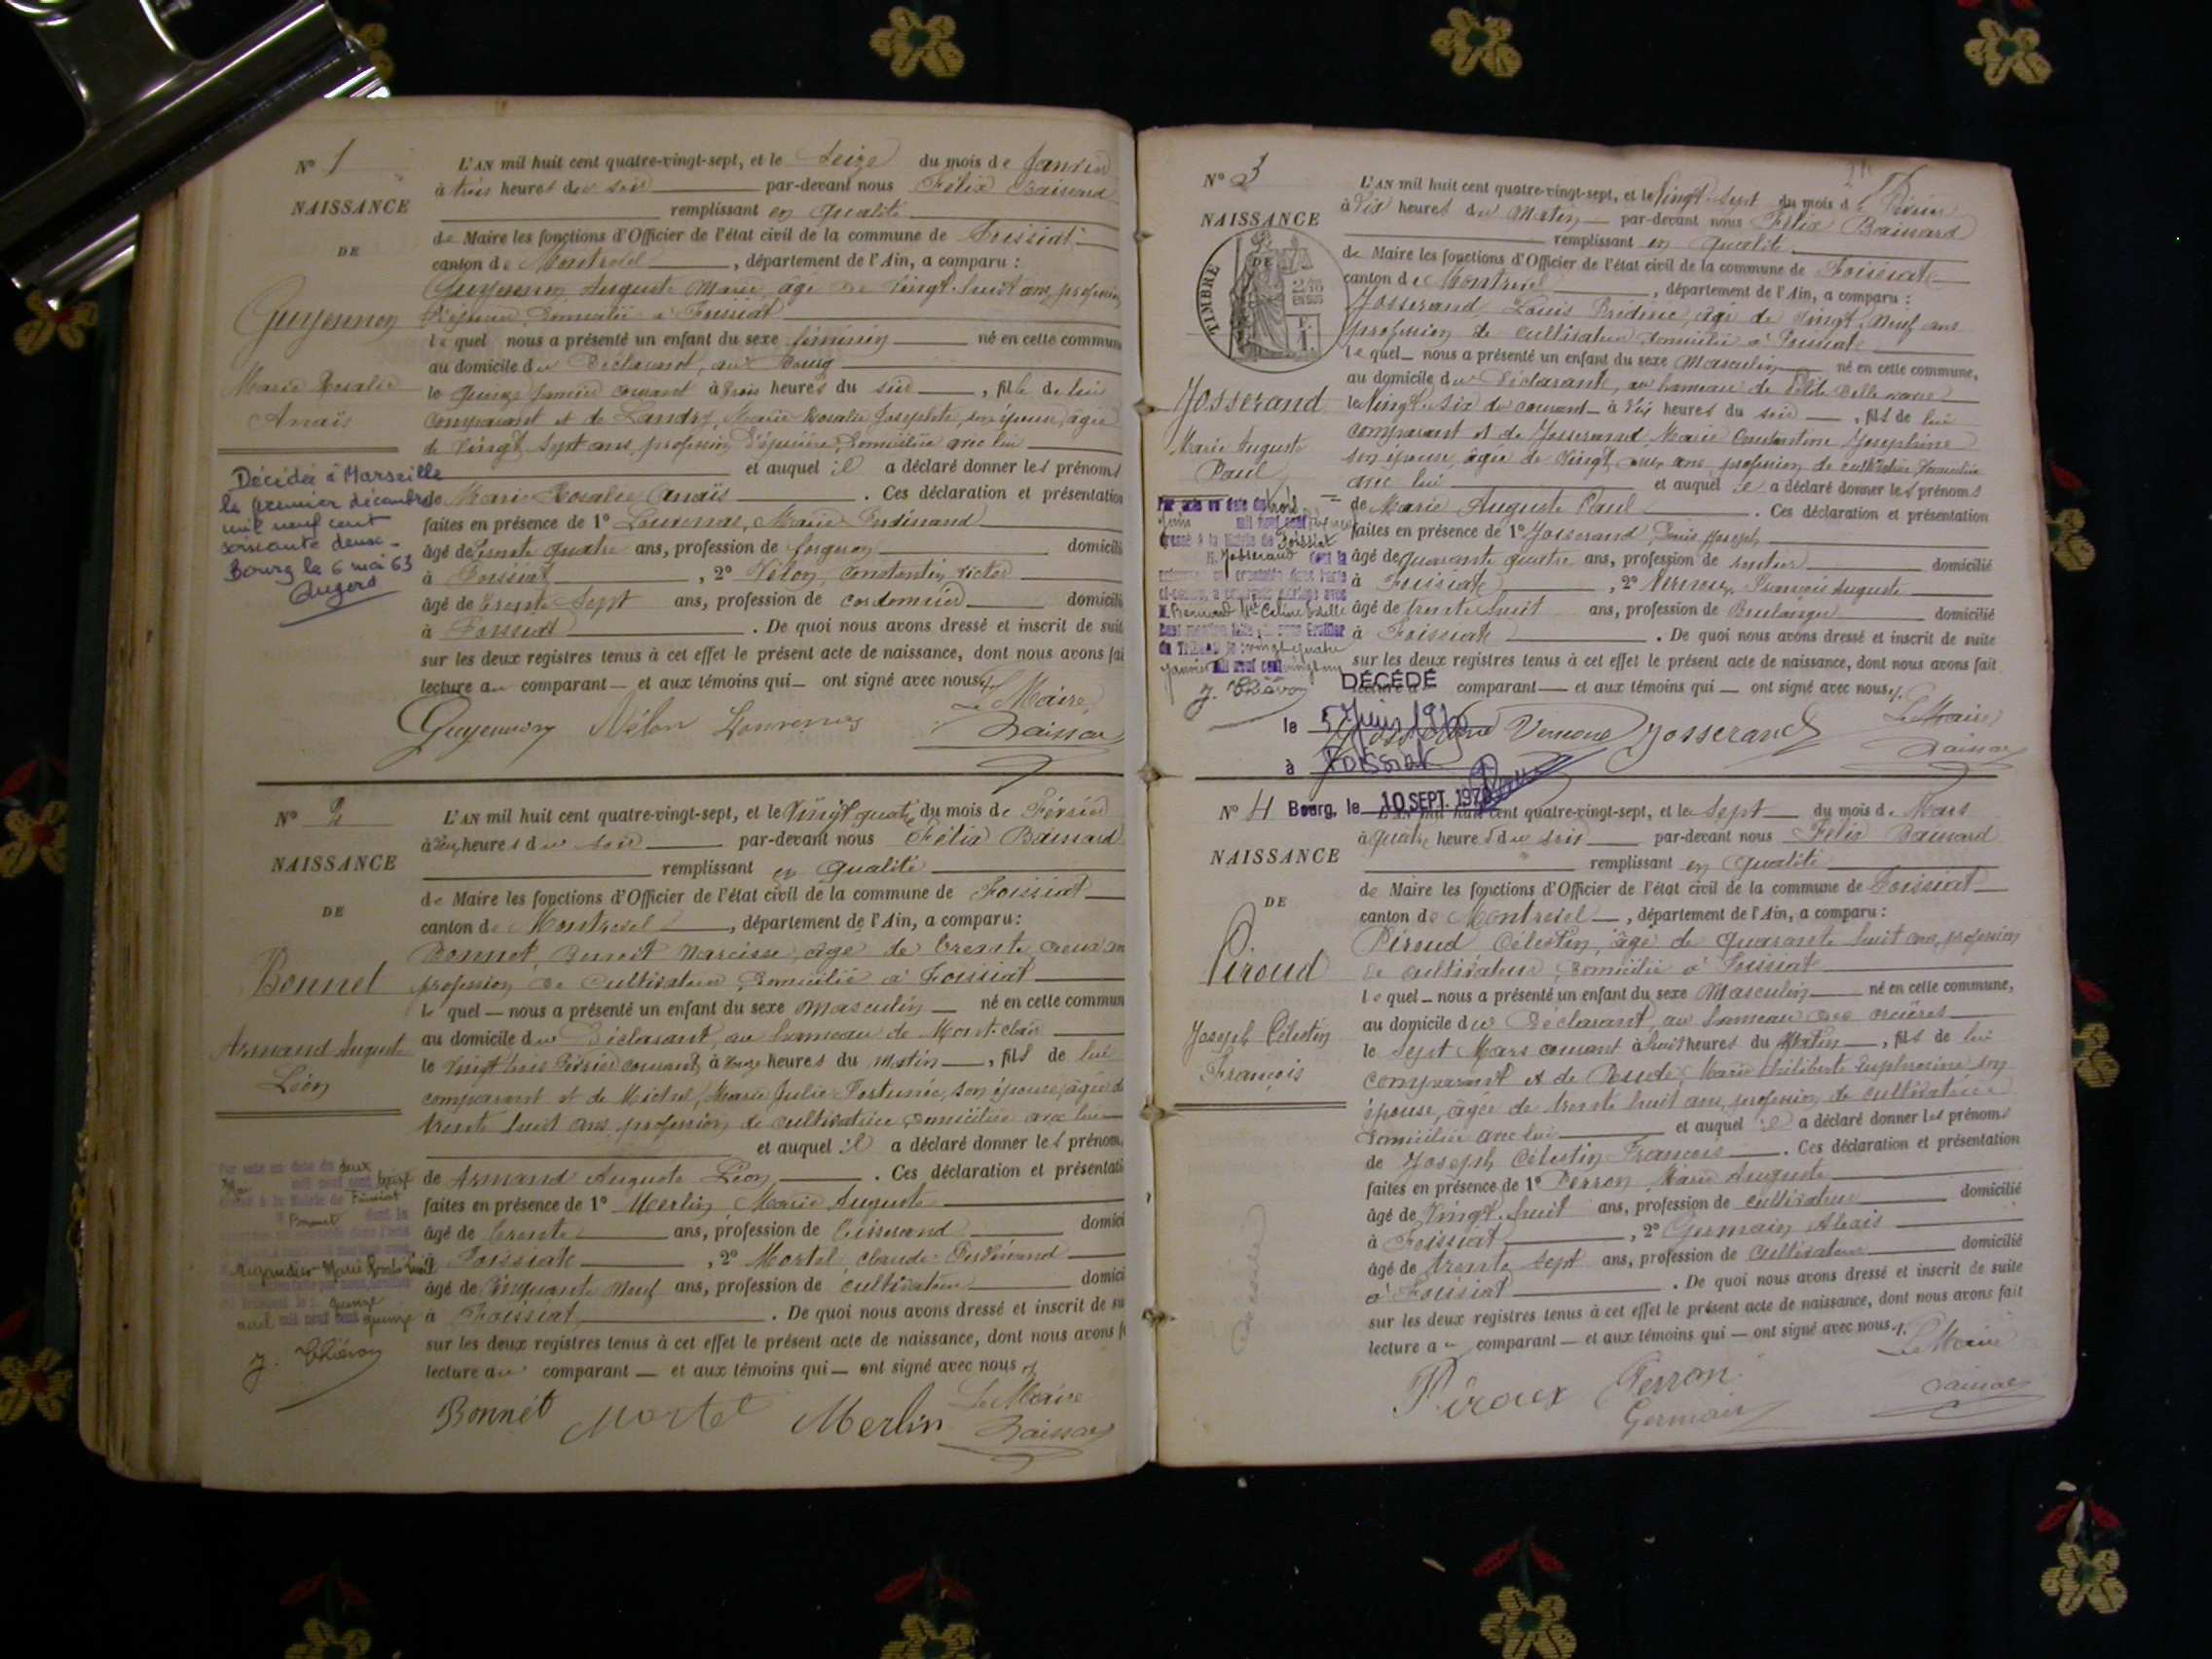 N° 1
NAISSANCE
DE
Guyennon
Marie Rosalie
Anaïs
Décédée à Marseille
le premier décembre
mil neuf cent
soixante deux.
Bourg le 6 mai 63
L'AN mil huit cent quatre-vingt-sept, et le Seize du mois de Janvier
à trois heures du soir par-devant nous Félix Baissard
remplissant en qualité
de Maire les fonctions d'Officier de l'état civil de la commune de Foissiat
canton de Montrevel, département de l'Ain, a comparu :
Guyennon, Auguste Marie, âgé de vingt-huit ans, profession
domicilié à Foissiat
lequel nous a présenté un enfant du sexe féminin né en cette commune
au domicile du déclarant, au Bourg
le quinze janvier courant à trois heures du soir, fille de lui
comparant et de Landry, Marie Rosalie Josephte, son épouse, âgée
de vingt sept ans, profession d'épicière, domiciliée avec lui
et auquel il a déclaré donner les prénoms
de Marie Rosalie Anaïs. Ces déclaration et présentation
faites en présence de 1° Lourenas, Marie Ferdinand
âgé de trente quatre ans, profession de forgeron domicilié
à Foissiat, 2° Vélon, Constantin Victor
âgé de trente sept ans, profession de cordonnier domicilié
à Foissiat. De quoi nous avons dressé et inscrit de suite
sur les deux registres tenus à cet effet le présent acte de naissance, dont nous avons fai
lecture au comparant et aux témoins qui ont signé avec nous.
Le Maire,
Guyennon Vélon
N° 2
NAISSANCE
DE
Bonnet
Armand Auguste
Léon
J. Chiévon
L'AN mil huit cent quatre-vingt-sept, et le vingt quatre du mois de Février
heures du soir par-devant nous Félix Baissard
remplissant en qualité
de Maire les fonctions d'Officier de l'état civil de la commune de Foissiat
canton de Montrevel, département de l'Ain, a comparu :
Bonnet, Benoit Narcisse, âgé de trente
profession de cultivateur, domicilié à Foissiat
lequel nous a présenté un enfant du sexe masculin né en cette commun
au domicile du déclarant, au hameau de Mont-clair
le vingt trois Février courant, à onze heures du matin, fils de lui
comparant et de Michel, Marie Julie Fortunée, son épouse, âgée de
trente huit ans, profession de cultivatrice domiciliée avec lui
et auquel il a déclaré donner les prénoms
de Armand Auguste Léon. Ces déclaration et présentati
faites en présence de 1° Merlin, Marie Auguste
âgé de trente ans, profession de tisserand domici
à Foissiat, 2° Mortel, Claude Ferdinand
âgé de cinquante neuf ans, profession de cultivateur domici
à Foissiat. De quoi nous avons dressé et inscrit de su
sur les deux registres tenus à cet effet le présent acte de naissance, dont nous avons f
lecture au comparant et aux témoins qui ont signé avec nous
Le Maire
Bonnet Mortel Merlin
N° 3
NAISSANCE
DE
TIMBRE
Josserand
Marie Auguste
Paul
J. Chiévon
L'AN mil huit cent quatre-vingt-sept, et le vingt-sept du mois de Février
à dix heures du matin par-devant nous Félix Baissard
remplissant en qualité
de Maire les fonctions d'Officier de l'état civil de la commune de Foissiat
canton de Montrevel, département de l'Ain, a comparu :
Josserand, Louis Frédéric, âgé de vingt-neuf ans
profession de cultivateur domicilié à Foissiat
lequel nous a présenté un enfant du sexe masculin né en cette commune,
au domicile du déclarant, au hameau de
le vingt-six du courant à dix heures du soir, fils de lui
comparant et de Josserand Marie Constantine Joséphine
son épouse, âgée de vingt ans, profession de cultivatrice, domiciliée
avec lui et auquel il a déclaré donner les prénoms
de Marie Auguste Paul. Ces déclaration et présentation
faites en présence de 1° Josserand, Denis Joseph
âgé de quarante quatre ans, profession de rentier domicilié
à Foissiat, 2° François Auguste
âgé de trente huit ans, profession de boulanger domicilié
à Foissiat. De quoi nous avons dressé et inscrit de suite
sur les deux registres tenus à cet effet le présent acte de naissance, dont nous avons fait
comparant et aux témoins qui ont signé avec nous.
Le Maire
DÉCÉDÉ
le 5 Juin
à Foissiat
Josserand
N° 4
Bourg, le 10 SEPT.
NAISSANCE
DE
Piroud
Joseph Célestin
François
cent quatre-vingt-sept, et le sept du mois de Mars
à quatre heures du soir par-devant nous Félix Baissard
remplissant en qualité
de Maire les fonctions d'Officier de l'état civil de la commune de Foissiat
canton de Montrevel, département de l'Ain, a comparu :
Piroud Célestin, âgé de quarante huit ans, profession
de cultivateur, domicilié à Foissiat
lequel nous a présenté un enfant du sexe masculin né en cette commune,
au domicile du déclarant, au hameau des
le sept Mars courant à huit heures du matin, fils de lui
comparant et de Marie Philiberte Euphrosine son
épouse, âgée de trente huit ans, profession de cultivatrice
domiciliée avec lui et auquel il a déclaré donner les prénoms
de Joseph Célestin François. Ces déclaration et présentation
faites en présence de 1° Perron Marie Auguste
âgé de vingt-huit ans, profession de cultivateur domicilié
à Foissiat, 2° Germain Alexis
âgé de trente sept ans, profession de cultivateur domicilié
à Foissiat. De quoi nous avons dressé et inscrit de suite
sur les deux registres tenus à cet effet le présent acte de naissance, dont nous avons fait
lecture au comparant et aux témoins qui ont signé avec nous.
Le Maire
Perron
Germain